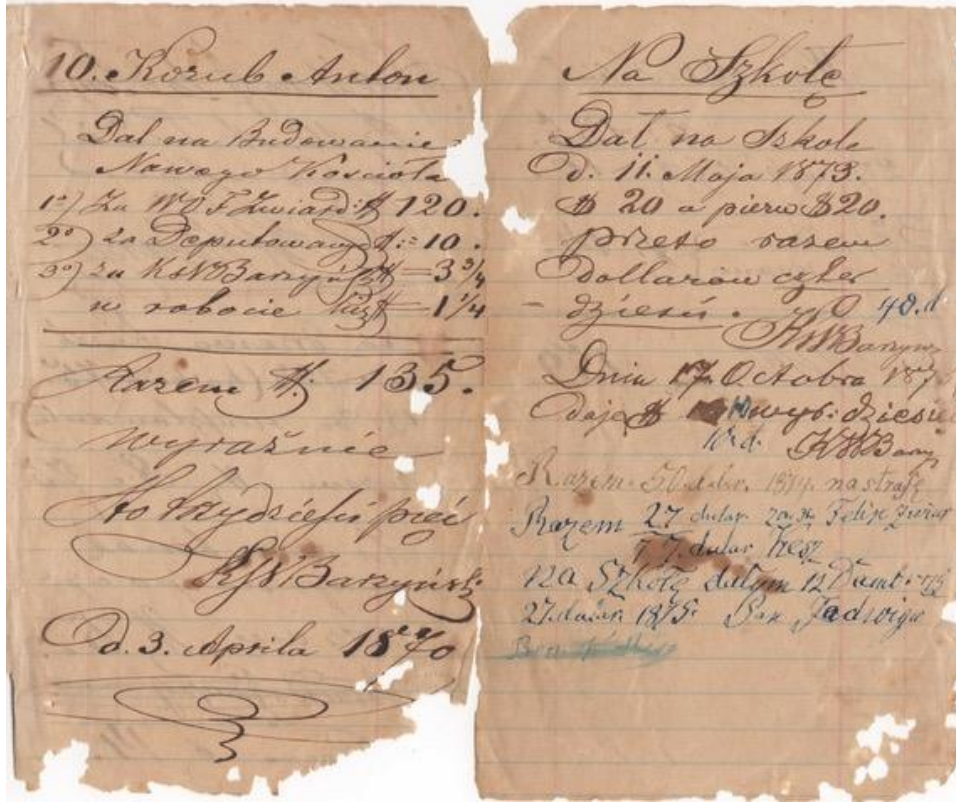 10. Kozub Anton
Dal na Budowanie
Nawego Kosciola
1º) Za W. O. F. Zwiard: $ 120.
2º) za Deputowany $ = 10.
3º) za Ks W Barzyńs $ = 3 3/4
w robocie $ = 1 1/4
Razem $. 135.
wyraźnie
Sto trzydzieści pięć
Ks W Barzyński
D. 3. Aprila 1870
Na Szkołę
Dał na Szkole
D. 11. Maja 1873.
$ 20 a pierw $20.
przeto razem
dollarów czter
- dzieści. 40. d
Ks W Barzyns
Dnia 17. Octobra 187
daje $ 10 wyr. dziesię
10. d. Ks W Barz
Razem 50 dolar. 1874.
Razem 27 dular Felix Zwiar
77. dular
Na Szkołę dałym 12
27. dular. 1875. Pan Jadwiga